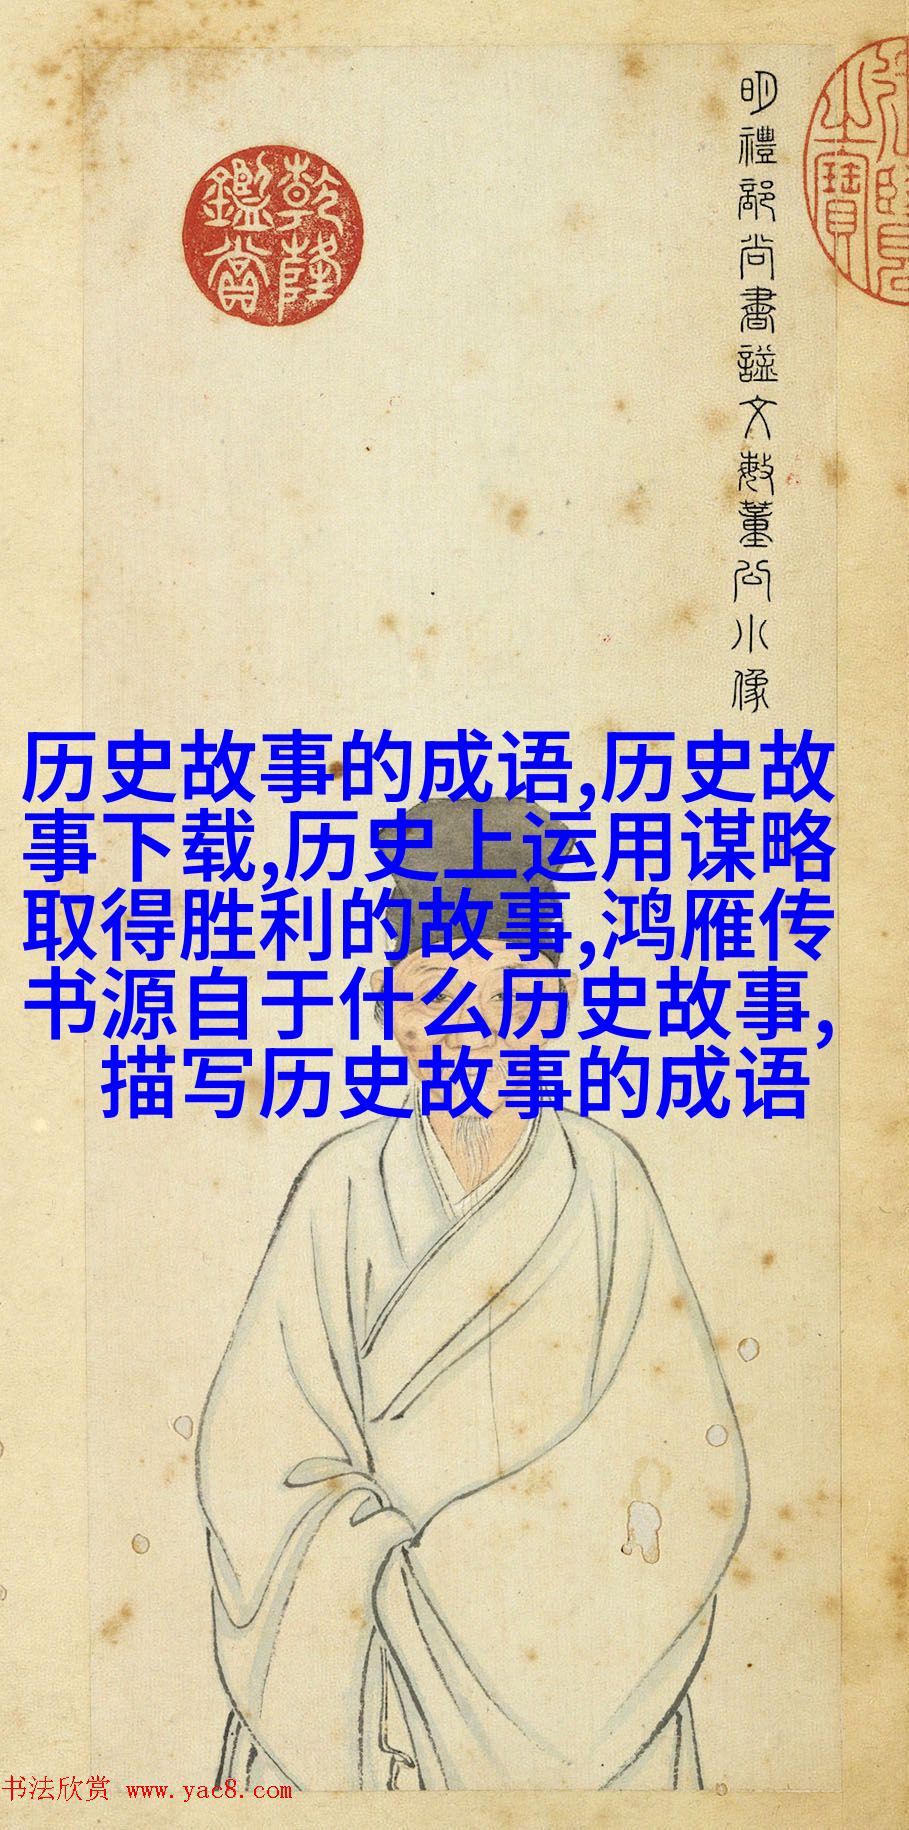 明禮部尚書諡文敏董公小像
乾隆
鑑賞
之寶
历史故事的成语,历史故
事下载,历史上运用谋略
取得胜利的故事,鸿雁传
书源自于什么历史故事,
描写历史故事的成语
书法欣赏 www.yac8.com